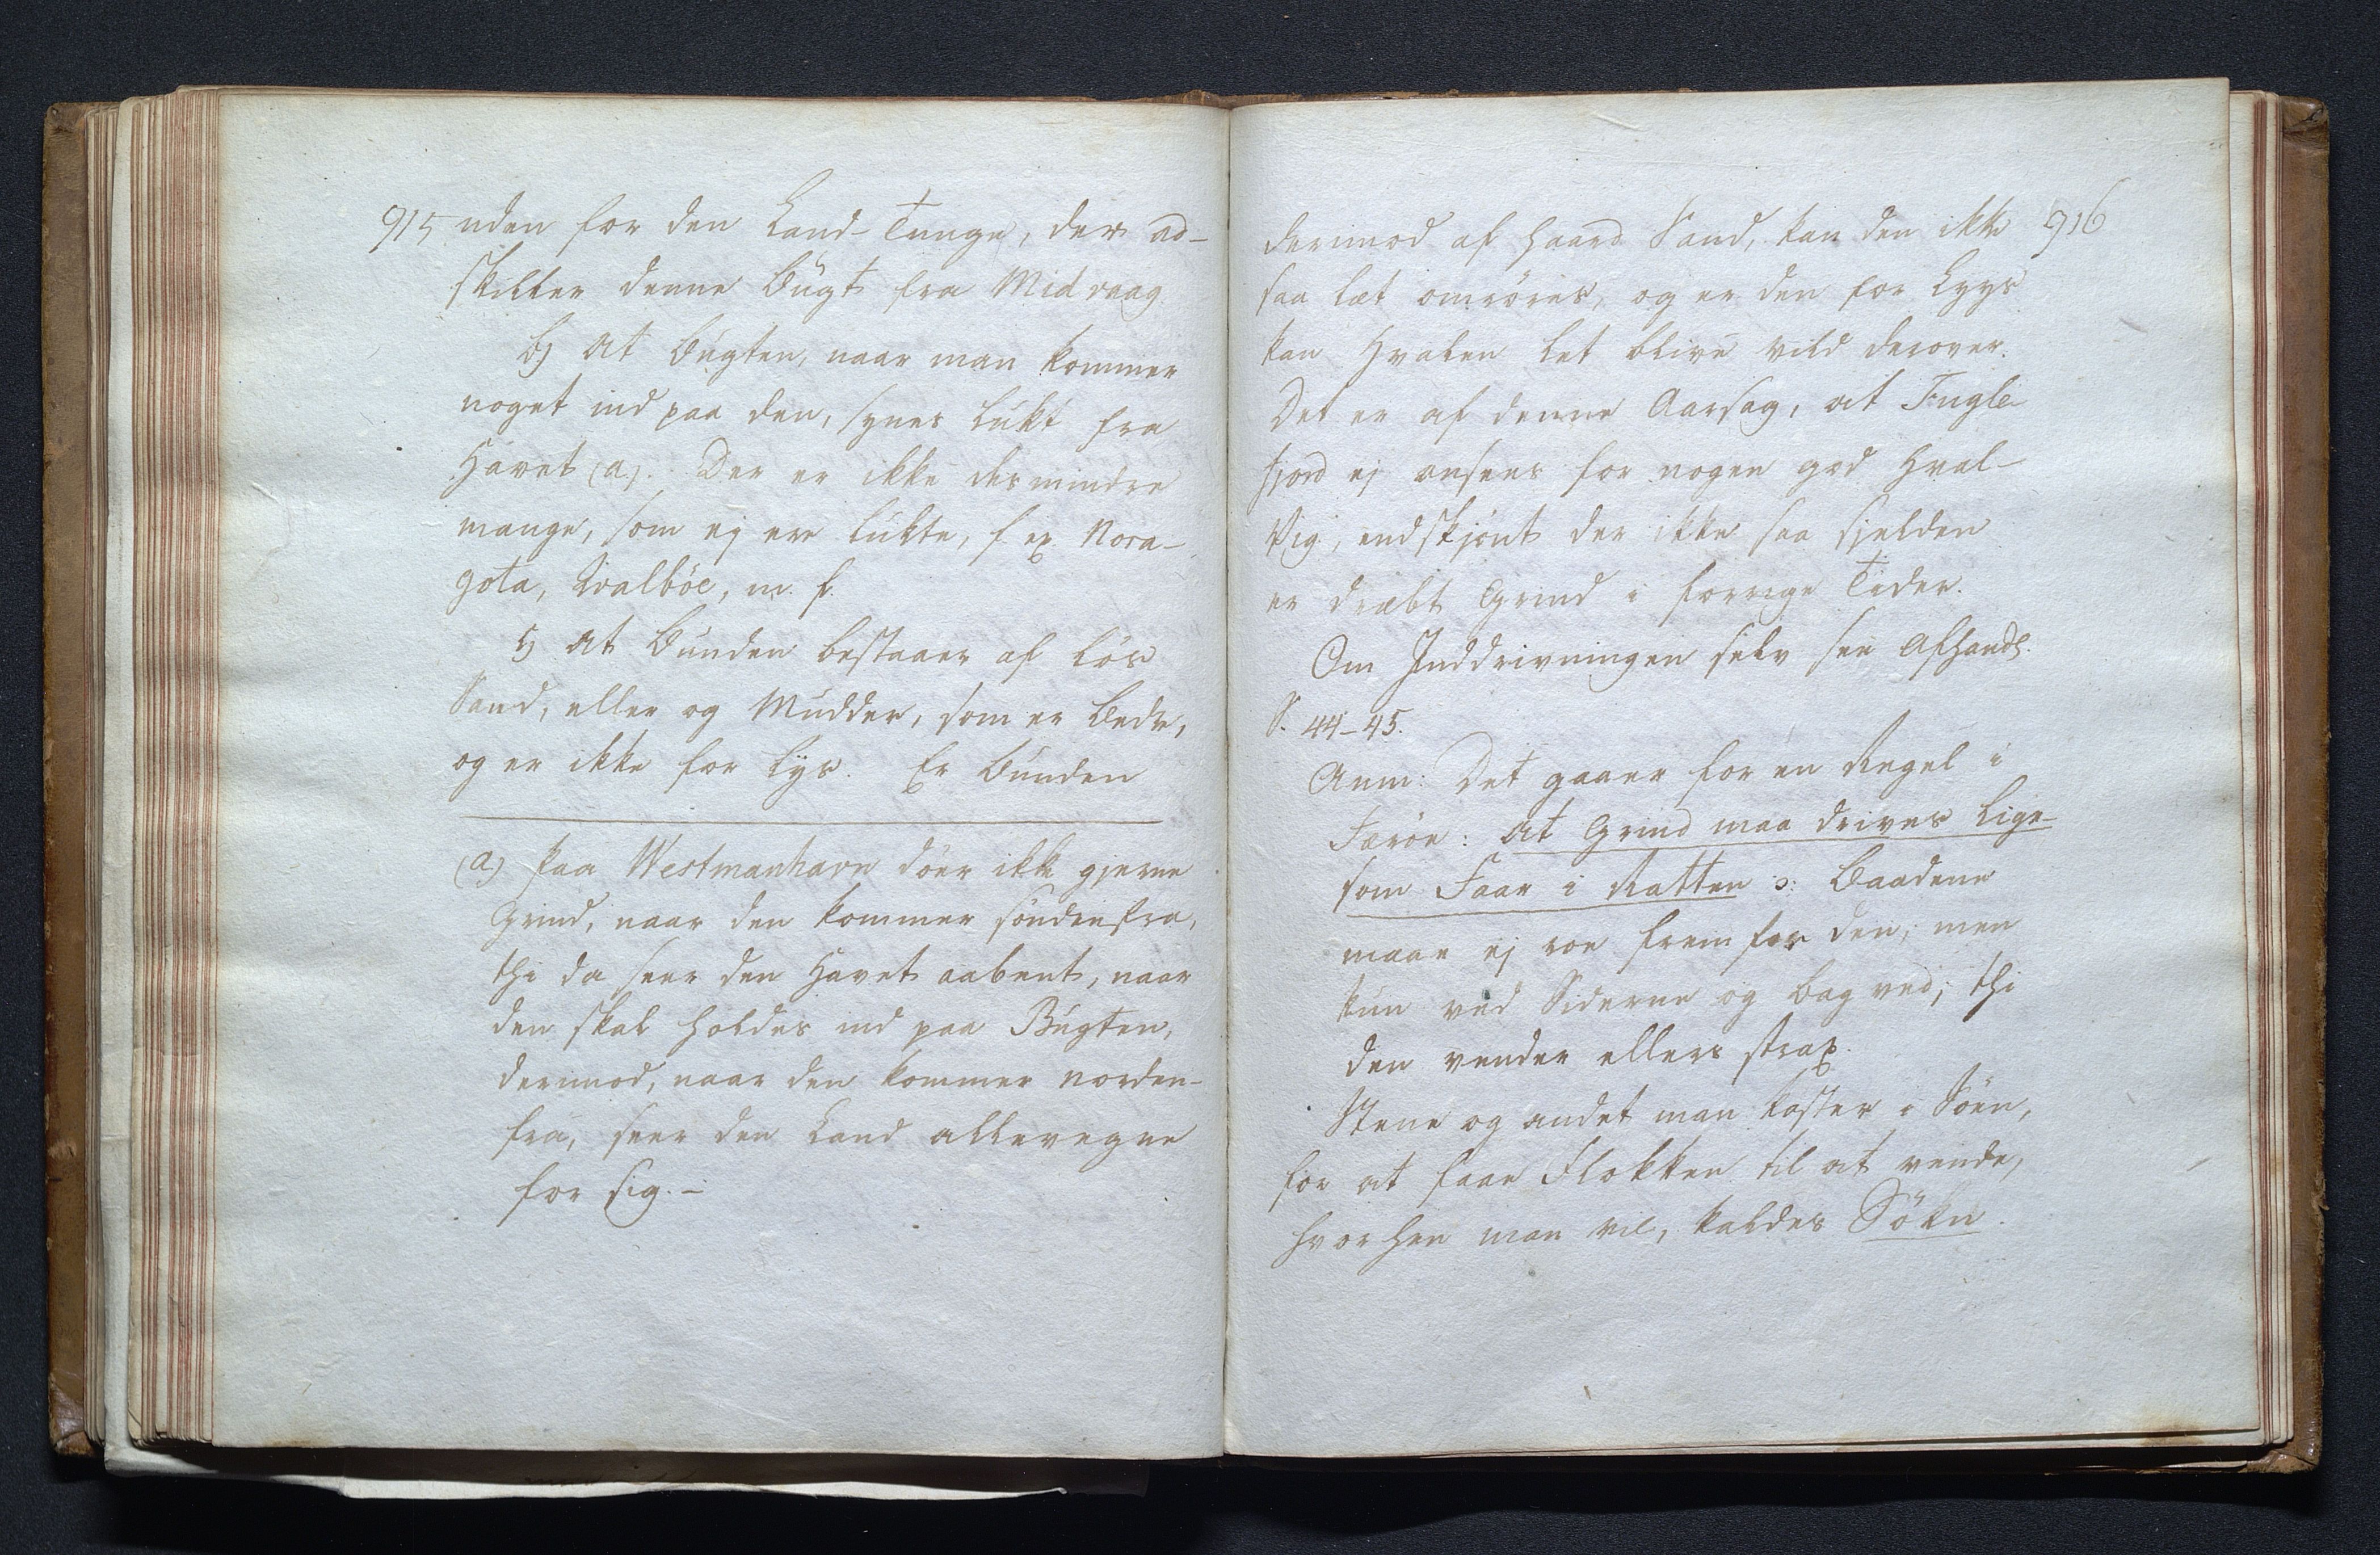 915 uden for den Land-Tunge, der ad-
skiller denne Bugt fra Midvaag.
b) At Bugten, naar man kommer
noget ind paa den, synes lukt fra
Havet (a). Der er ikke desmindre
mange, som ej ere lukte, f. ex. Nora-
gøta, Qvalböe, m. fl.
c) At Bunden bestaaer af lös
Sand, eller og Mudder, som er Bedre,
og er ikke for lys. Er Bunden
(a) Paa Westmanhavn döer ikke gjerne
Grind, naar den kommer söndenfra,
thi da seer den Havet aabent, naar
den skal holdes ind paa Bugten,
derimod, naar den kommer norden-
fra, seer den Land allevegne
for sig. –
derimod af haard Sand, kan den ikke 916
saa læt omröres, og er den for Lyys
kan Hvalen let blive vild derover.
Det er af denne Aarsag, at Fugle-
fjord ej ansees for nogen god Hval-
Vig, endskjönt der ikke saa sjelden
er dræbt Grind i forrige Tider.
Om Inddrivningen selv see Afhandl.
S. 44–45.
Anm: Det gaaer for en Regel i
Færöe: At Grind maa drives lige-
som Faar i Retten ɔ: Baadene
maae ej roe frem for den, men
kun ved Siderne og bag ved; thi
den vender ellers strax.
Stene og andet man kaster i Söen,
for at faae Flokken til at vende,
hvorhen man vil, kaldes Sökn.